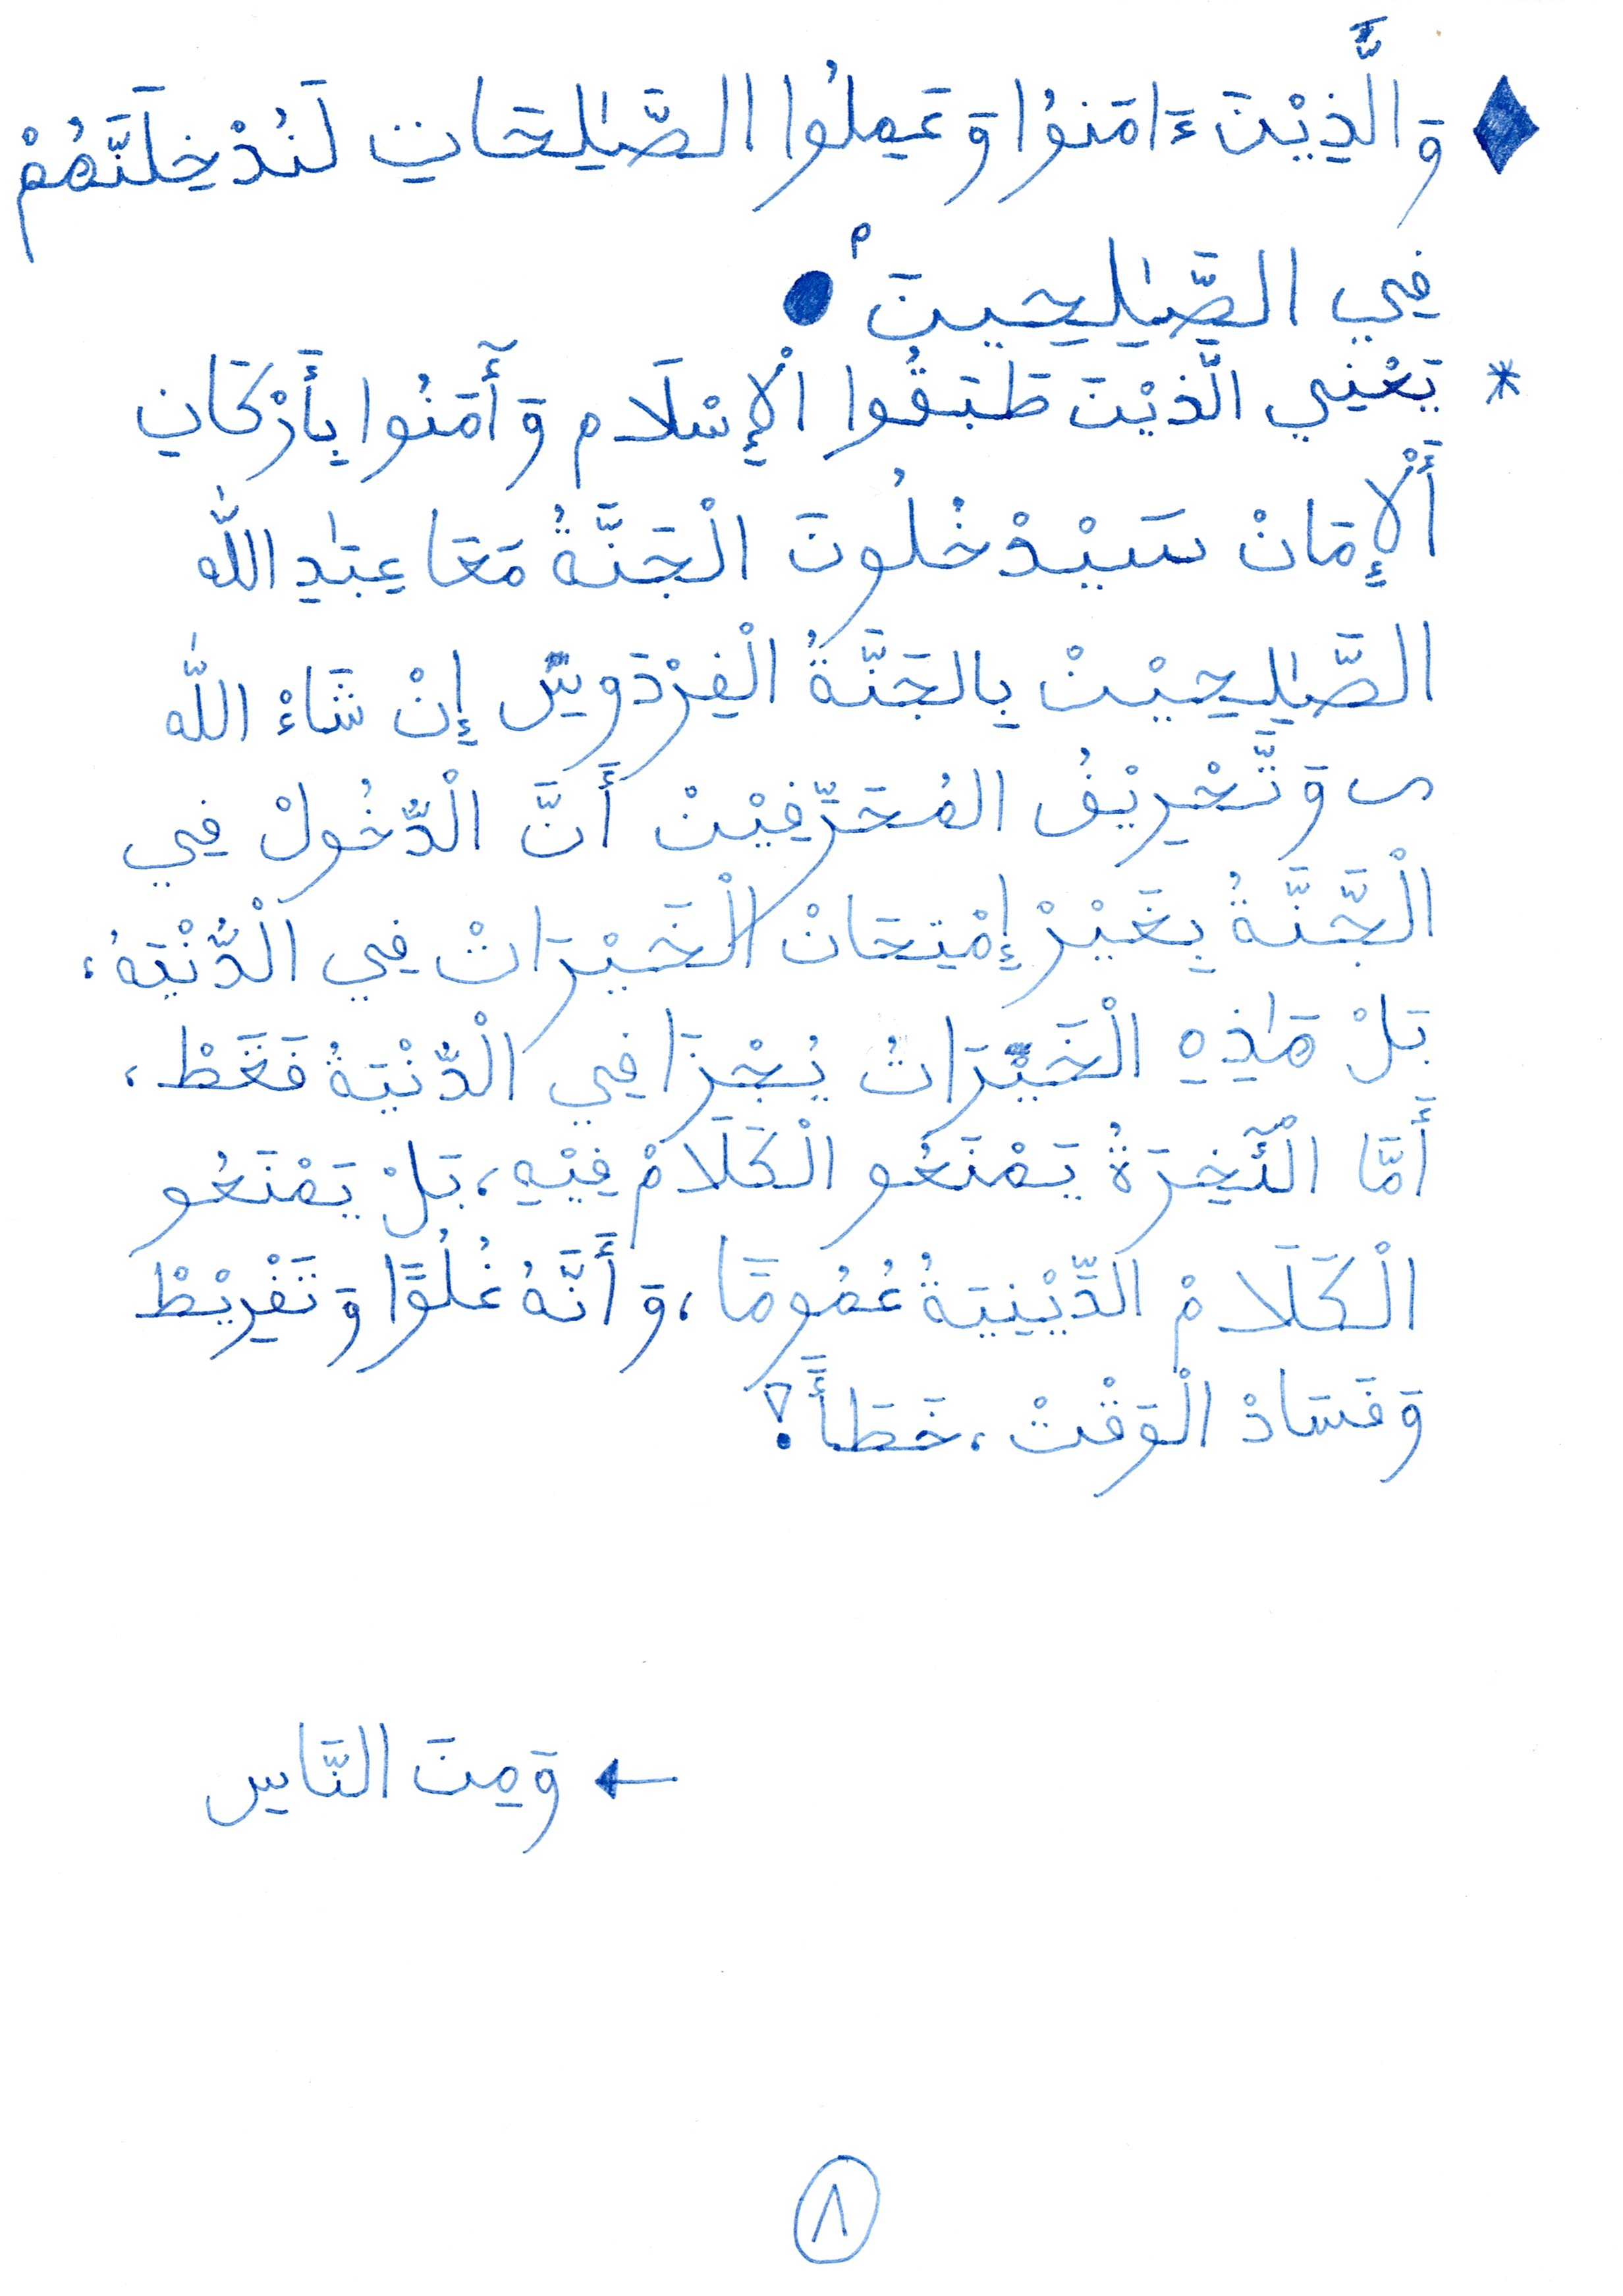 وَالَّذِيْنَ ءَامَنُوْا وَعَمِلُوا الصَّٰلِحَاتِ لَنُدْخِلَنَّهُمْ
فِي الصَّٰلِحِينَ ۢ ●
* يَعْنِي الَّذِيْنَ طَبَقُوا الْإِسْلَام وَأٓمَنُوا بِأَرْكَانِ
أَلْإِمَانْ سَيَدْخُلُونَ الْجَنَّةُ مَعَا عِبَٰدِ اللّٰه
الصَّٰلِحِيْنْ بِالجَنَّةُ الْفِرْدَوسْ إِنْ شَاءْ اللّٰه
وَتَّحْرِيْفُ المُحَرِّفِيْنْ أَنَّ الْدُّخُولْ فِي
الْجَّنَّةُ بِغَيْرْ إِمْتِحَانْ الْخَيْرَاتْ فِي الْدُّنْيَهُ،
بَلْ هَٰذِهِ الْخَيْرَاتُ يُجْزَا فِي الْدُّنْيَةُ فَقَطْ،
أَمَّا الْئٓخِرَةُ يَمْنَعُو الْكَلَامْ فِيْهِ، بَلْ يَمْنَعُو
الْكَلَامْ الدِّيْنِيَةُ عُمُومًا، وَأَنَّهُ غُلُوًّا وَتَفْرِيْطْ
وَفَسَادْ الْوَقْتْ، خَطَأً!
← وَمِنَ النَّاسِ
٨